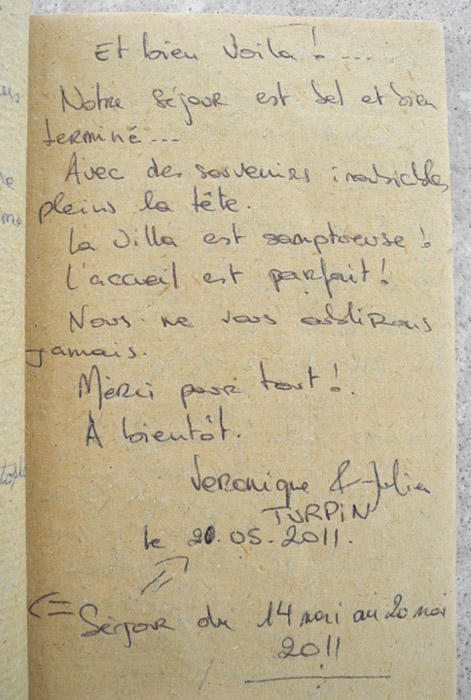 Et bien Voila ! ....
Notre séjour est bel et bien
terminé ...
Avec des souvenirs inoubliables
pleins la tête.
La Villa est somptueuse !
L'accueil est parfait !
Nous ne vous oublirons
jamais.
Merci pour tout !.
A bientôt.
Veronique & Julien
TURPIN
le 20.05.2011.
Séjour du 14 mai au 20 mai
2011